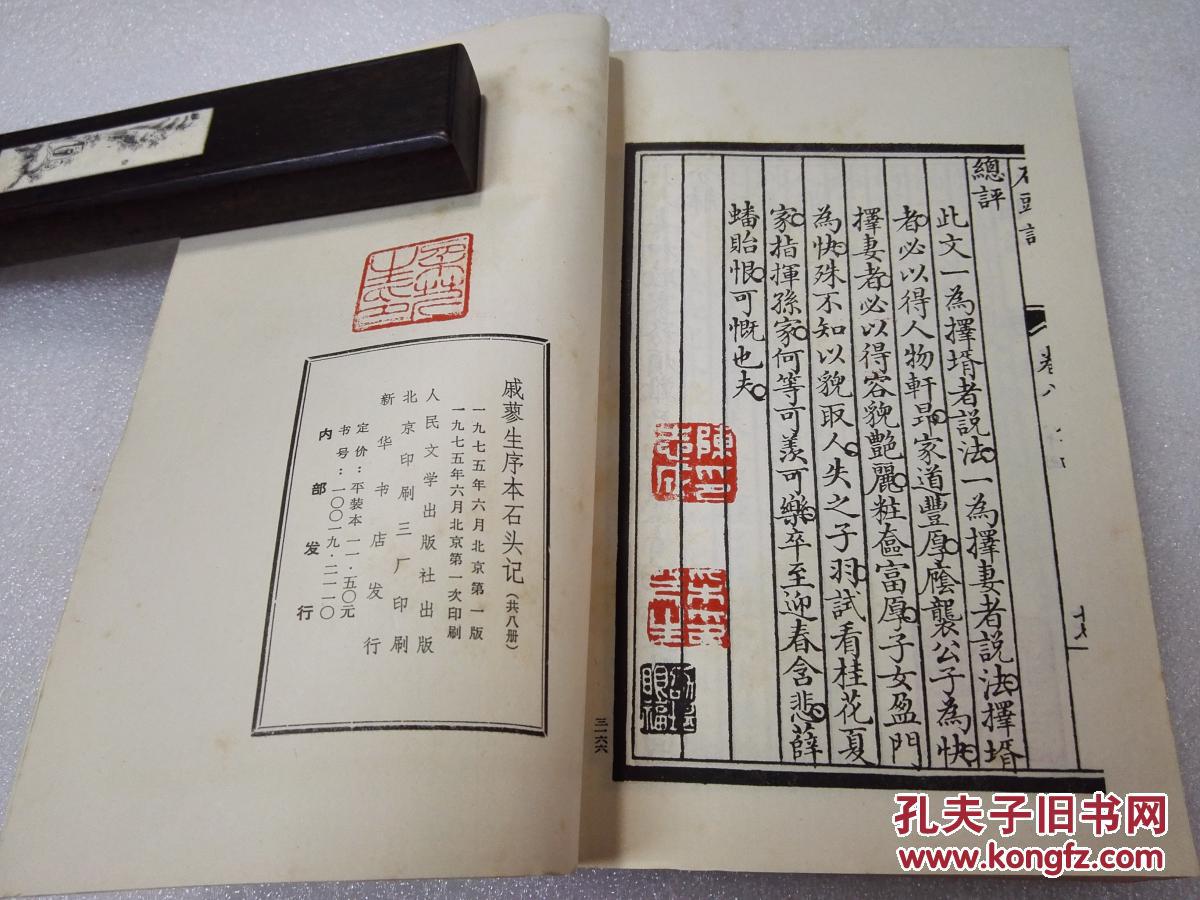 石頭記
卷八
總評
此文一為擇壻者説法一為擇妻者説法擇壻
者必以得人物軒昻家道豐厚廕襲公子為快
擇妻者必以得容貌艷麗粧奩富厚子女盈門
為快殊不知以貌取人失之子羽試看桂花夏
家指揮孫家何等可羨可樂卒至迎春含悲薛
蟠貽恨可慨也夫
眼福
三一六六
戚蓼生序本石头记（共八册）
一九七五年六月北京第一版
一九七五年六月北京第一次印刷
人民文学出版社出版
北京印刷三厂印刷
新华书店发行
定价：平装本一一·五〇元
书号：一〇〇一九·二一一〇
内部发行
孔夫子旧书网
www.kongfz.com